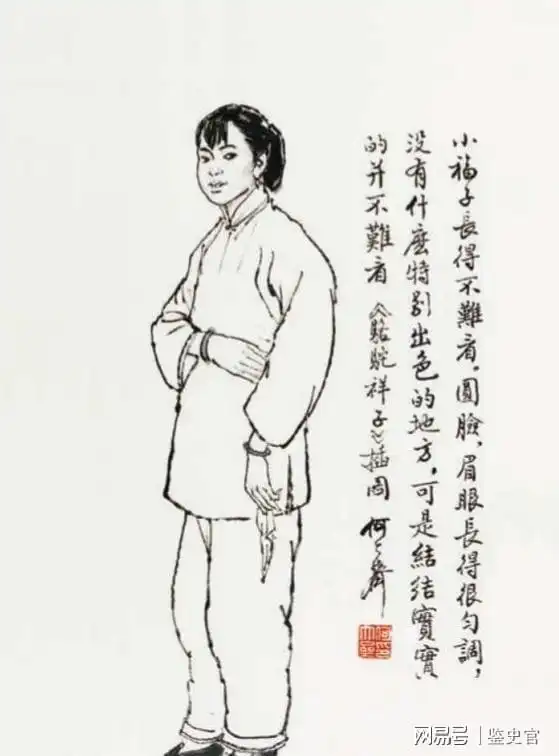 小福子長得不難看。圓臉，眉眼長得很勻調，
没有什麽特别出色的地方，可是結結實實
的并不難看 《駱駝祥子》插图 何
网易号 | 鉴史官